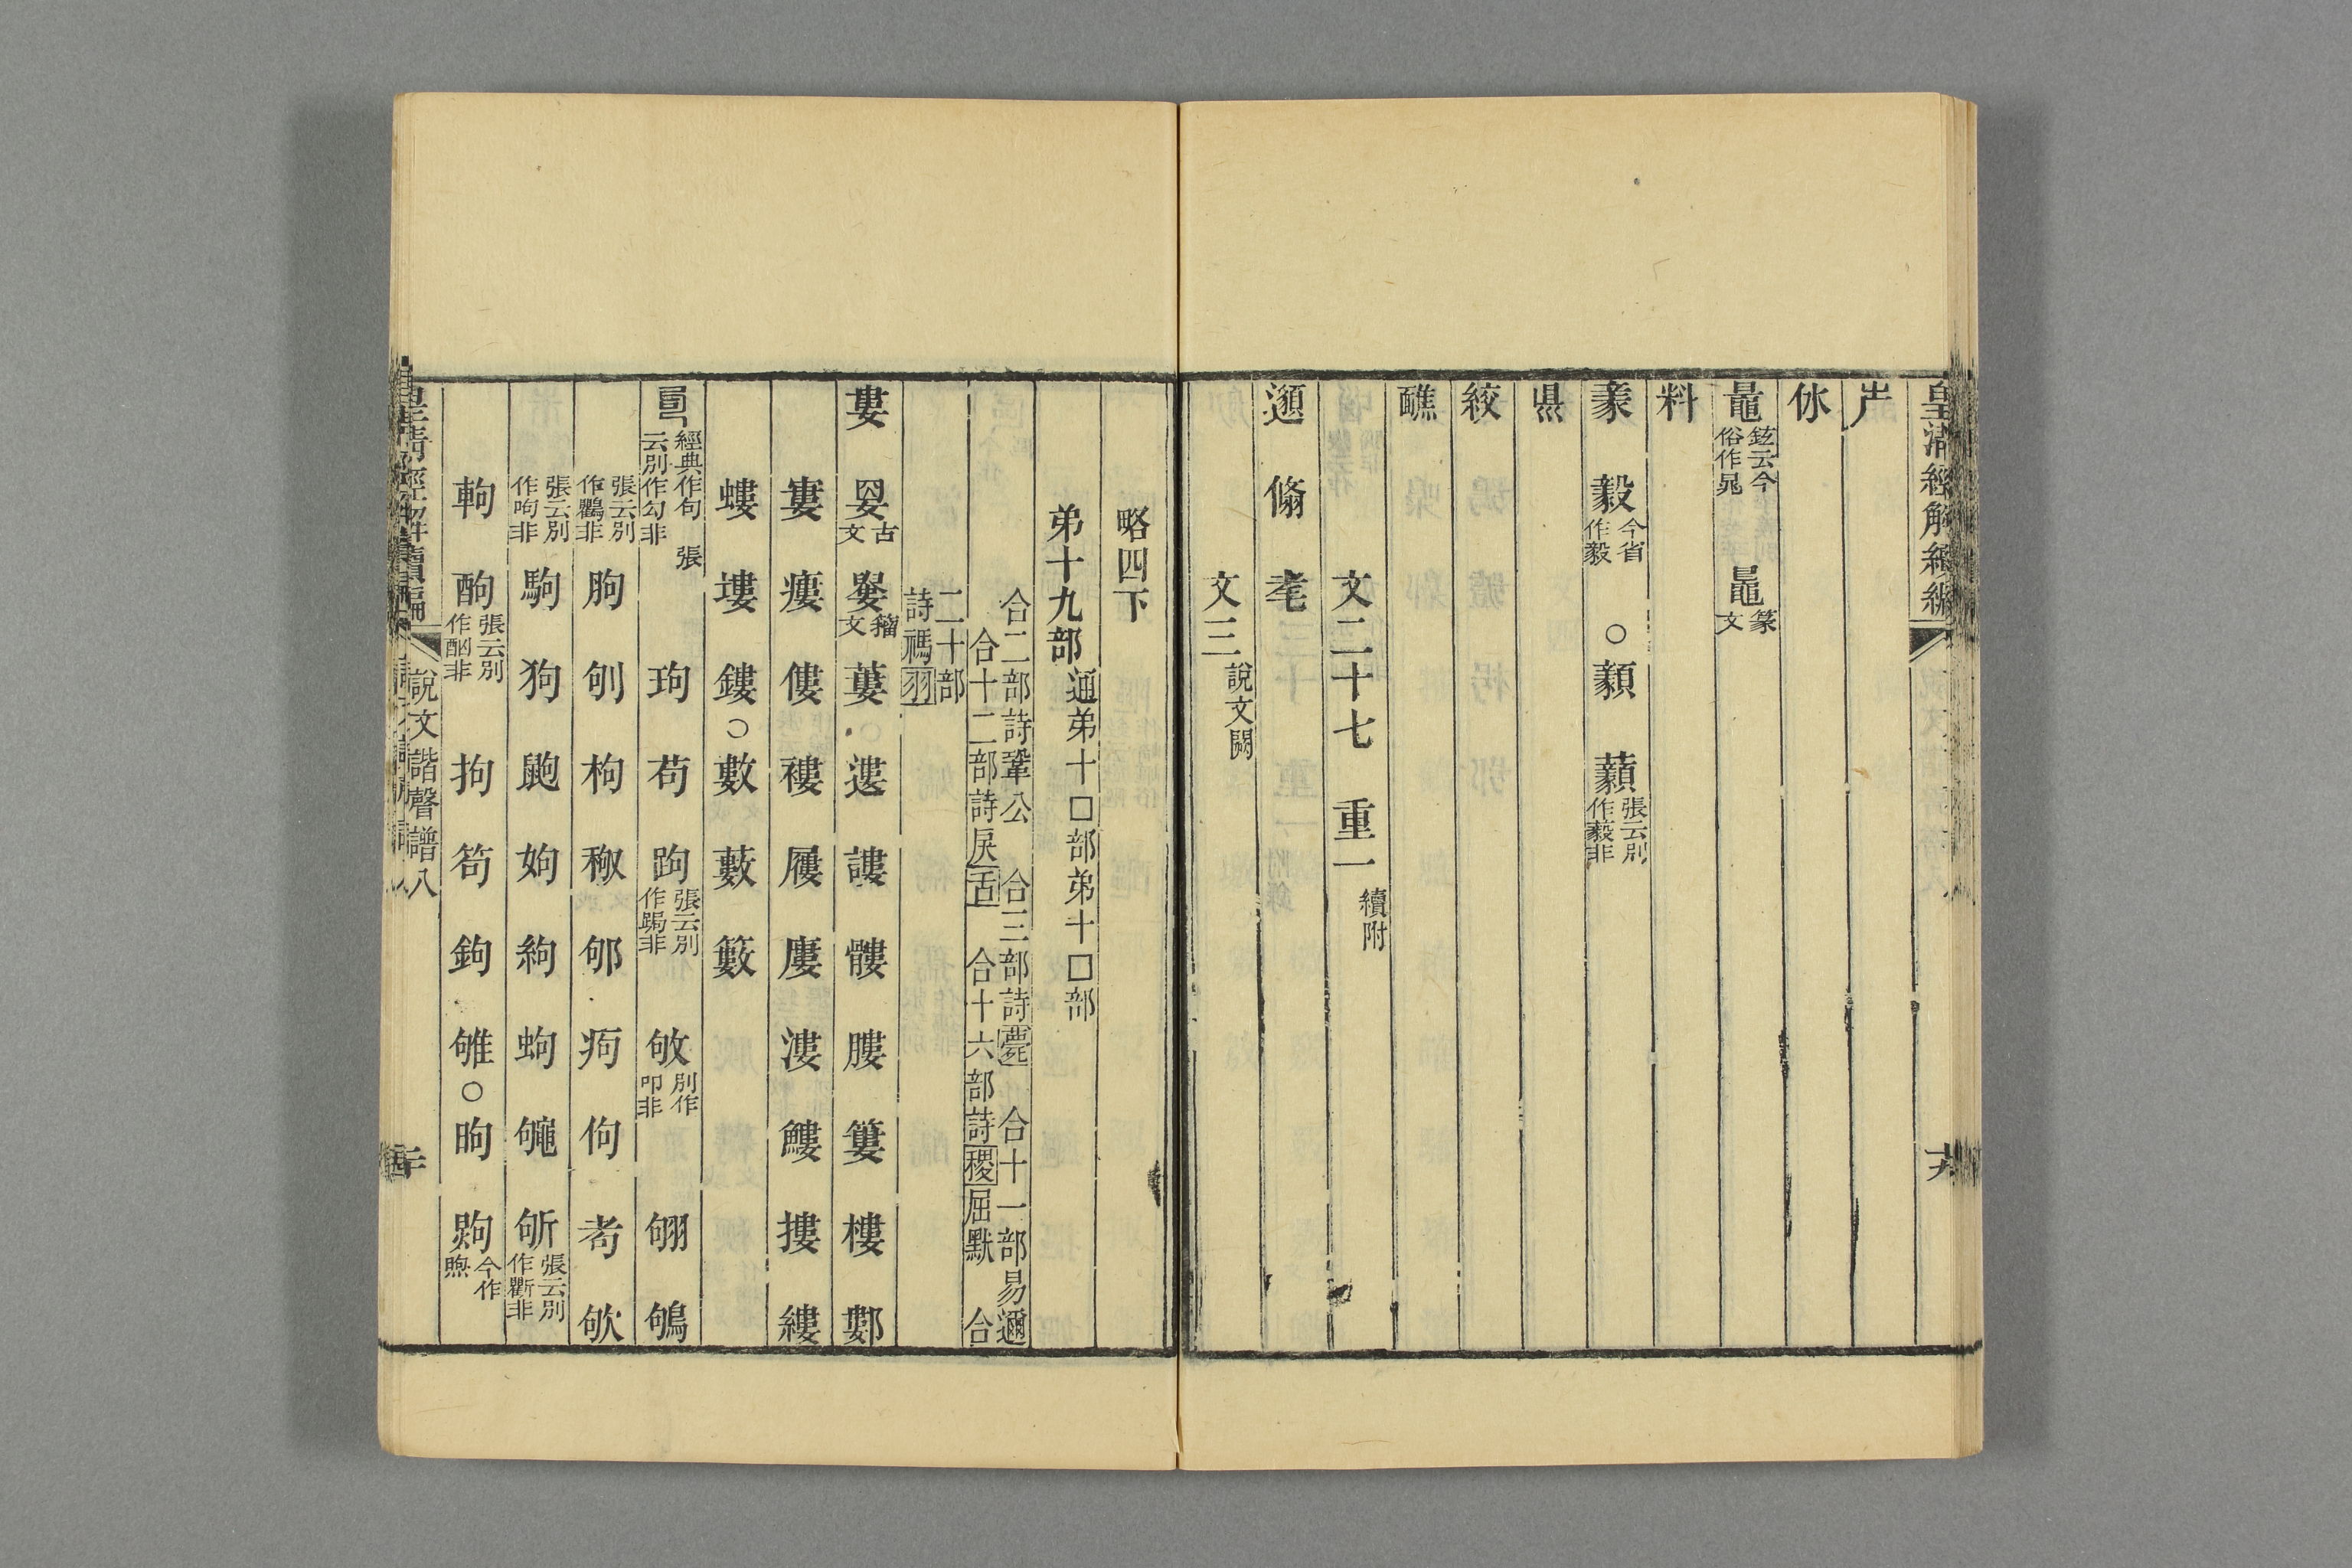 皇清經解續編
屵
㳄
鼂鉉云今俗作晁 鼂篆文
料
豙 毅今省作毅 ○ 顡 藙張云別作藙非
䑞
絞
醮
文二十七 重一續附
邎 翛 耄
文三說文闕
略四下
弟十九部通弟十□部弟十□部
合二部詩鞏公 合三部詩薨 合十一部易邇
合十二部詩戾舌 合十六部詩稷屈默 合
二十部
詩禡羽
婁 㛗古文 䙴籀文 蔞 ○ 遱 謱 髏 膢 簍 樓 鄻
寠 瘻 僂 褸 屨 廔 漊 鰻 摟 縷
螻 塿 鏤 ○ 數 藪 籔
㽕經典作句張云別作勾非 玽 苟 跔張云別作跼非 敂別作叩非 翑 鴝
張云別作鸜非 朐 刏 枸 䅓 邭 痀 佝 耇 欨
張云別作呴非 駒 狗 鼩 姁 絇 蚼 䵶 斪張云別作斸非
軥 酌張云別作酗非 拘 笱 鉤 雊 ○ 昫 煦今作煦
皇清經解續編
說文諧聲譜八